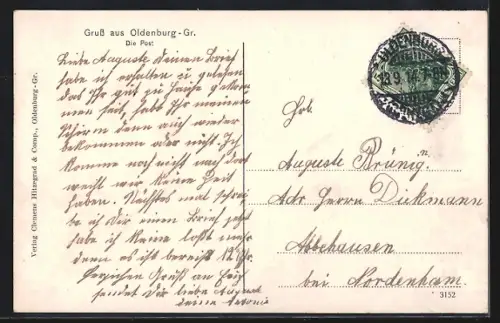 Gruß aus Oldenburg-Gr.
Die Post
Liebe Auguste Deinen Brief
habe ich erhalten u gelesen
das Ihr gut zu Hause gekom
men seit, habt Ihr meinen
Schirm denn auch wieder
bekommen oder nicht. Ich
komme noch nicht nach dort
weil wir keine Zeit
haben. Nächstes mal schrei
be ich Dir einen Brief jetzt
habe ich keine lust mehr
denn es ist bereits 12 Uhr.
Herzichen Gruß an Euch
sendet Dir liebe August
deine Antonie
Verlag Clemens Hitzegrad & Comp., Oldenburg-Gr.
OLDENBURG
13.9.14.
Auguste Brünig.
Adr Herrn Dickmann
Abbehausen
bei Nordenham.
3152